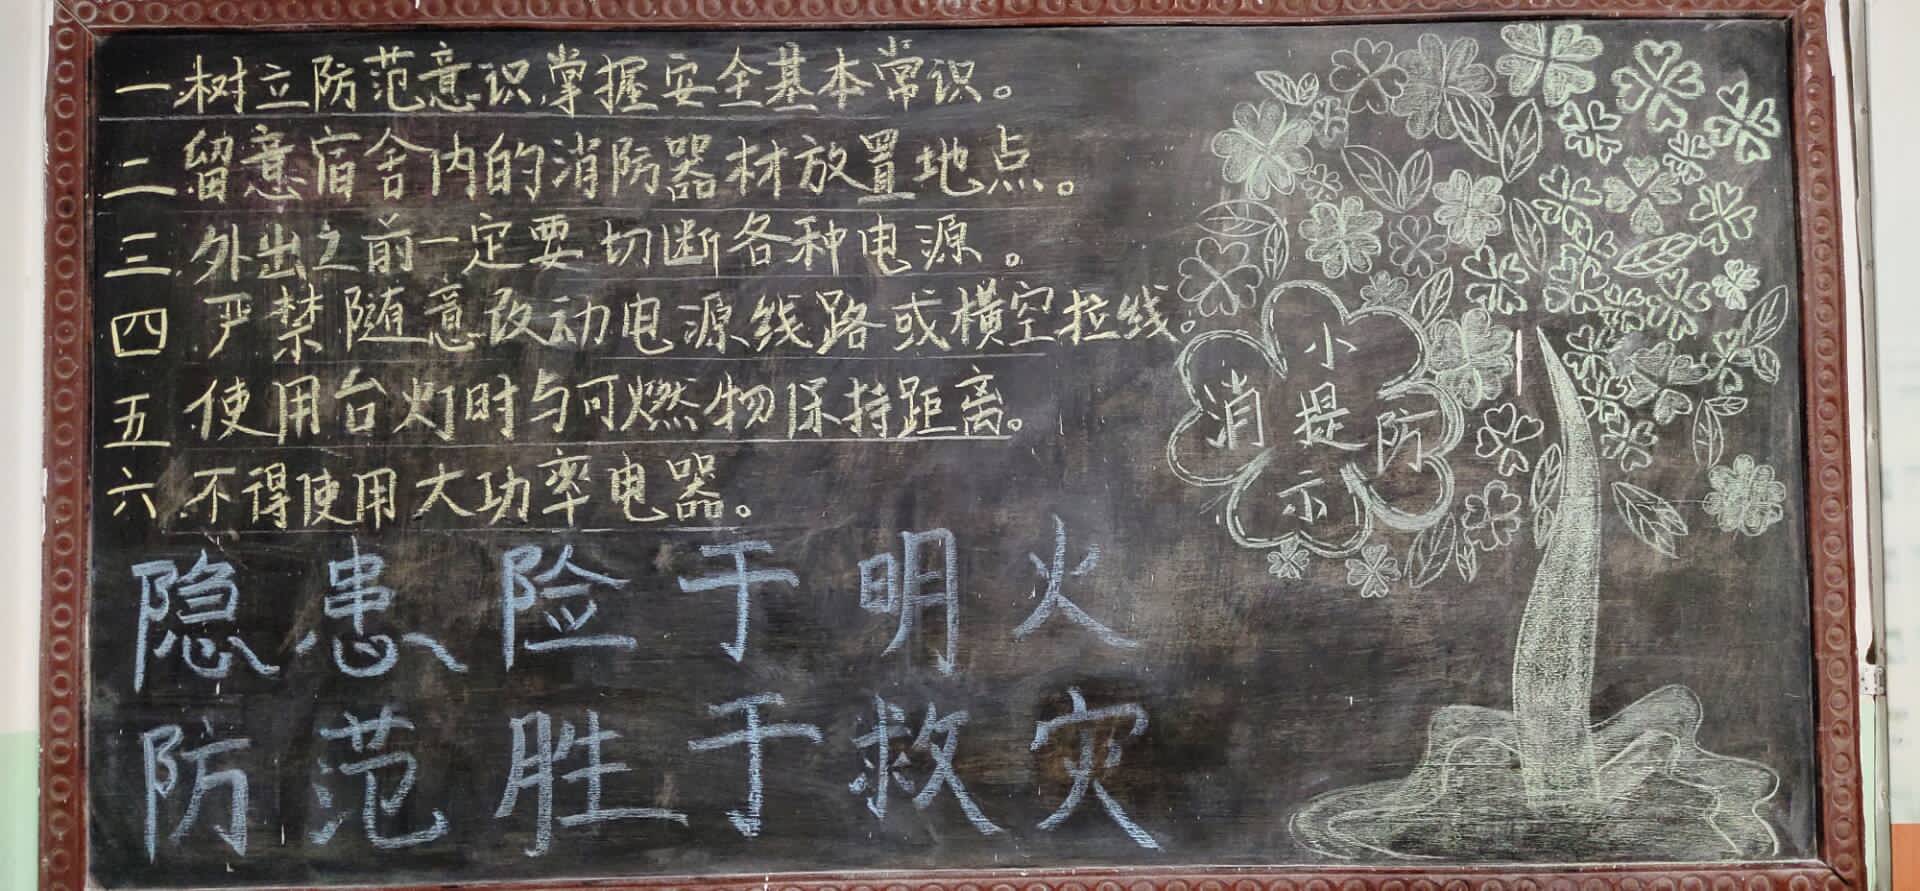 一.树立防范意识,掌握安全基本常识。
二 留意宿舍内的消防器材放置地点。
三.外出之前一定要切断各种电源。
四 严禁随意改动电源线路或横空拉线。
五 使用台灯时与可燃物保持距离。
六.不得使用大功率电器。
小
消提防
示
隐患险于明火
防范胜于救灾